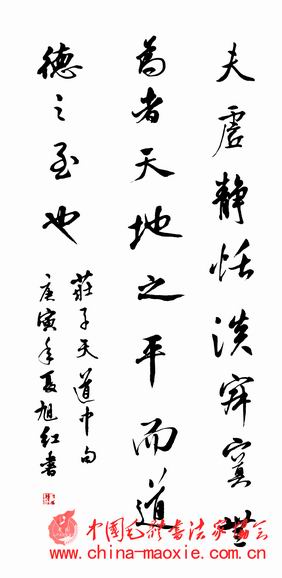 夫虛靜恬淡寂寞無
為者天地之平而道
德之至也
莊子天道中句
庚寅年夏旭紅書
中國毛體書法家協會
www.china-maoxie.com.cn